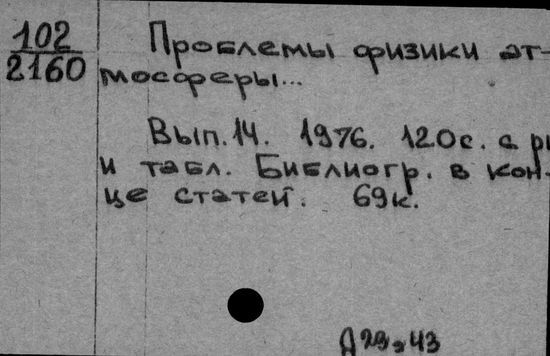 102
2160
Проблемы физики ат-
мосферы...
Вып. 14. 1976. 120с. с
и табл. Библиогр. в кон-
це статей. 69к.